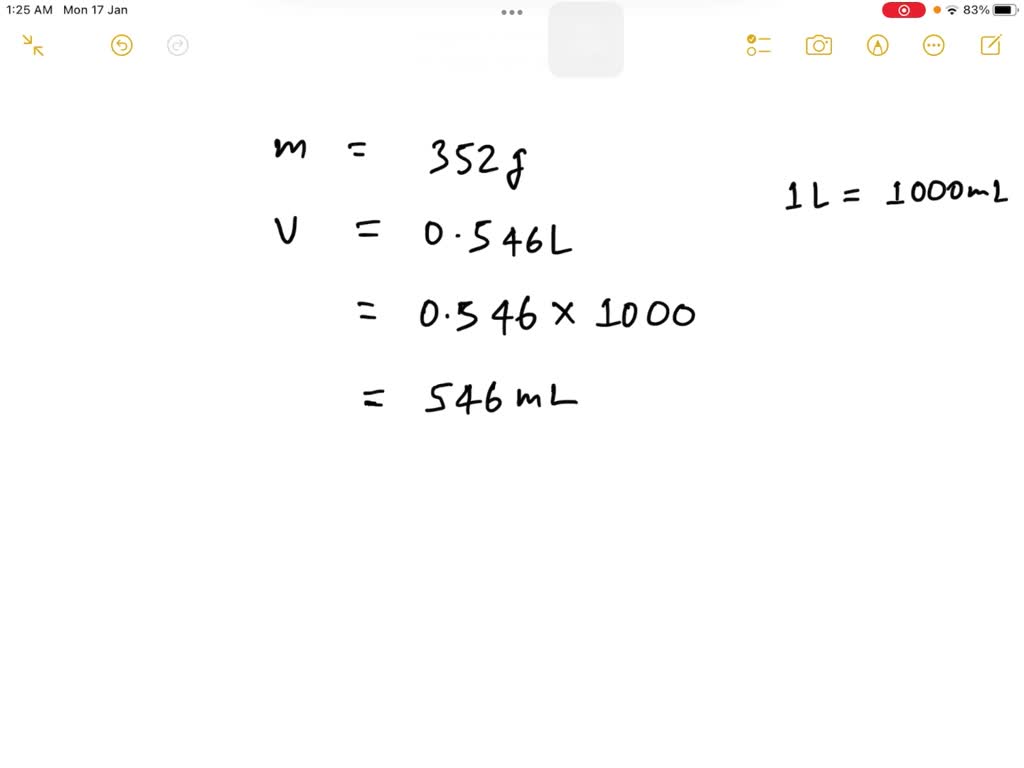 1:25 AM Mon 17 Jan
83%
m = 352g
1L = 1000mL
V = 0.546L
= 0.546 × 1000
= 546 mL